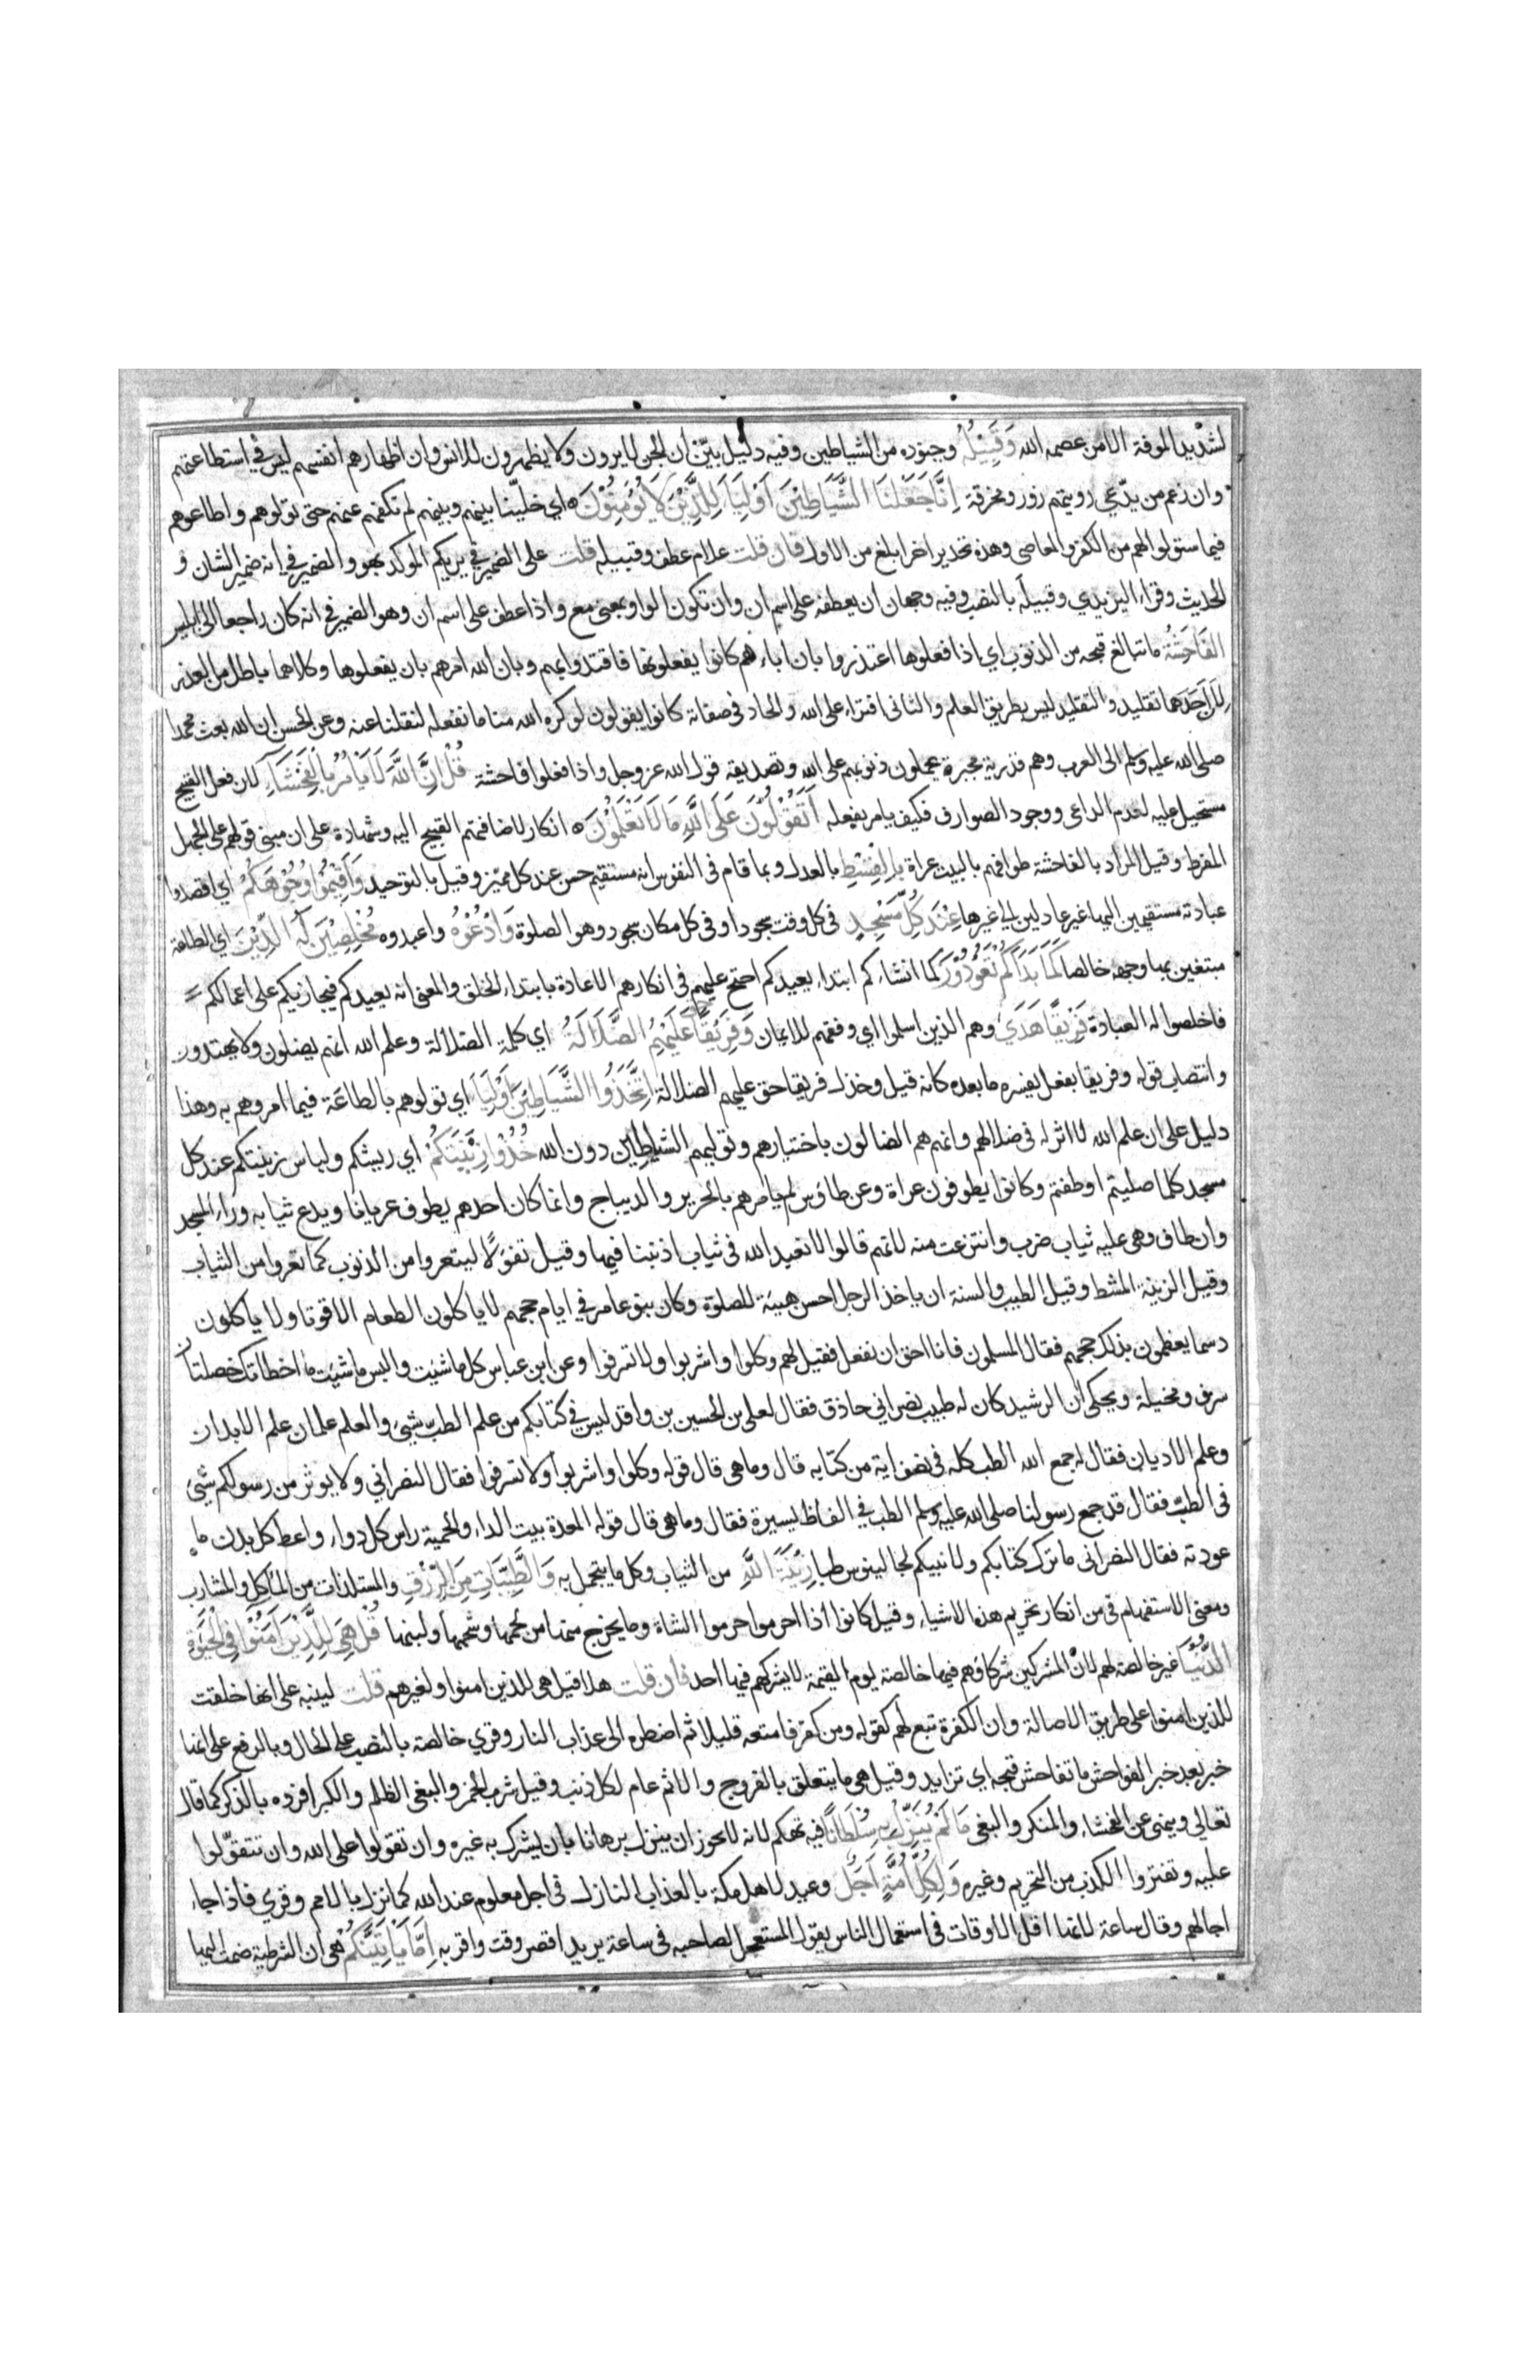 لشديد المؤنة الا من عصمه الله وَقَبِيْلُهُ وجنوده من الشياطين وفيه دليل بيّن ان الجن لا يرون ولا يظهرون للانس وان اظهارهم انفسهم ليس في استطاعتهم
وان زعم من يدّعي رويتهم زور ومخرقة اِنَّا جَعَلْنَا الشَّيَاطِيْنَ اَوْلِيَاءَ لِلَّذِيْنَ لَا يُؤْمِنُوْنَ ه اي خلّينا بينهم وبينهم لم نكفهم عنهم حتى تولوهم واطاعوهم
فيما سولوا لهم من الكفر والمعاصي وهذه تحذير اخر ابلغ من الاول فان قلت علام عطف وقبيله قلت على الضمير في يريكم الموكد بهو والضمير في انه ضمير الشان و
الحديث وقراء اليزيدي وقبيلَه بالنصب وفيه وجهان ان يعطفه على اسم ان وان تكون الواو بمعنى مع واذا عطف على اسم ان وهو الضمير في انه كان راجعا الى ابليس
الفَاحِشَةُ ما تبالغ قبحه من الذنوب اي اذا فعلوها اعتذروا بان اباءهم كانوا يفعلونها فاقتدوا بهم وبان الله امرهم بان يفعلوها وكلاهما باطل من العذر
لان احدهما تقليد والتقليد ليس بطريق العلم والثاني افتراء على الله والحاد في صفاته كانوا يقولون لو كره الله منا ما نفعله لنقلنا عنه وعن الحسن ان الله بعث محمدا
صلى الله عليه وسلم الى العرب وهم قدرية مجبرة يحملون ذنوبهم على الله وتصديقه قول الله عز وجل واذا فعلوا فاحشة قُلْ اِنَّ اللّٰهَ لَا يَاْمُرُ بِالْفَحْشَاءِ لان فعل القبيح
مستحيل عليه لعدم الداعي ووجود الصوارف فكيف يامر بفعله اَتَقُوْلُوْنَ عَلَى اللّٰهِ مَا لَا تَعْلَمُوْنَ ه انكار لاضافتهم القبيح اليه وشهادة على ان مبنى قولهم على الجهل
المفرط وقيل المراد بالفاحشة طوافهم بالبيت عراة بِالْقِسْطِ بالعدل وبما قام في النفوس انه مستقيم حسن عند كل مميز وقيل بالتوحيد وَاَقِيْمُوْا وُجُوْهَكُمْ اي اقصدوا
عبادته مستقيمين اليها غير عادلين الى غيرها عِنْدَ كُلِّ مَسْجِدٍ في كل وقت سجود او في كل مكان سجود وهو الصلوة وَادْعُوْهُ واعبدوه مُخْلِصِيْنَ لَهُ الدِّيْنَ اي الطاعة
مبتغين بها وجهه خالصا كَمَا بَدَاَكُمْ تَعُوْدُوْنَ كما انشاءكم ابتداء يعيدكم احتج عليهم في انكارهم الاعادة بابتداء الخلق والمعنى انه يعيدكم فيجازيكم على اعمالكم
فاخلصوا له العبادة فَرِيْقًا هَدَى وهم الذين اسلموا اي وفقهم للايمان وَفَرِيْقًا حَقَّ عَلَيْهِمُ الضَّلَالَةُ اي كلمة الضلالة وعلم الله انهم يضلون ولا يهتدون
وانتصاب قوله وفريقا بفعل يفسره ما بعده كانه قيل وخذل فريقا حق عليهم الضلالة اتَّخَذُوا الشَّيَاطِيْنَ اَوْلِيَاءَ اي تولوهم بالطاعة فيما امروهم به وهذا
دليل على ان علم الله لا اثر له في ضلالهم وانهم هم الضالون باختيارهم وتوليهم الشياطين دون الله خُذُوْا زِيْنَتَكُمْ اي ريشكم ولباس زينتكم عند كل
مسجد كلما صليتم او طفتم وكانوا يطوفون عراة وعن طاؤس لم يامرهم بالحرير والديباج وانما كان احدهم يطوف عريانا ويدع ثيابه وراء المسجد
وان طاف وهي عليه ثياب ضرب وانتزعت منه لانهم قالوا لا نعبد الله في ثياب اذنبنا فيها وقيل تفؤلًا ليتعروا من الذنوب كما تعروا من الثياب
وقيل الزينة المشط وقيل الطيب والسنة ان ياخذ الرجل احسن هيئة للصلوة وكان بنو عامر في ايام حجهم لا ياكلون الطعام الا قوتا ولا ياكلون
دسما يعظمون بذلك حجهم فقال المسلمون فانا احق ان نفعل فقيل لهم وكلوا واشربوا ولا تسرفوا وعن ابن عباس كل ما شئت والبس ما شئت ما اخطاتك خصلتان
سرف ومخيلة ويحكى ان الرشيد كان له طبيب نصراني حاذق فقال لعلي بن الحسين بن واقد ليس في كتابكم من علم الطب شيئ والعلم علمان علم الابدان
وعلم الاديان فقال له جمع الله الطب كله في نصف اية من كتابه قال وما هي قال قوله وكلوا واشربوا ولا تسرفوا فقال النصراني ولا يوثر من رسولكم شيئ
في الطب فقال قد جمع رسولنا صلى الله عليه وسلم الطب في الفاظ يسيرة فقال وما هي قال قوله المعدة بيت الداء والحمية راس كل دواء واعط كل بدن ما
عودته فقال النصراني ما ترك كتابكم ولا نبيكم لجالينوس طبا زِيْنَةَ اللّٰهِ من الثياب وكل ما يتجمل به وَالطَّيِّبَاتِ مِنَ الرِّزْقِ والمستلذات من المآكل والمشارب
ومعنى الاستفهام في من انكار تحريم هذه الاشياء وقيل كانوا اذا احرموا حرموا الشاة وما يخرج منها من لحمها وشحمها ولبنها قُلْ هِيَ لِلَّذِيْنَ اٰمَنُوْا فِي الْحَيٰوةِ
الدُّنْيَا غير خالصة لهم لان المشركين شركاؤهم فيها خالصة يوم القيمة لا يشركهم فيها احد فان قلت هلا قيل هي للذين امنوا ولغيرهم قلت لينبه على انها خلقت
للذين امنوا على طريق الاصالة وان الكفرة تبع لهم كقوله ومن كفر فامتعه قليلا ثم اضطره الى عذاب النار وقري خالصة بالنصب على الحال وبالرفع على انها
خبر بعد خبر الفواحش ما تفاحش قبحه اي تزايد وقيل هي ما يتعلق بالفروج والاثم عام لكل ذنب وقيل شرب الخمر والبغي الظلم والكبر افرده بالذكر كما قال
تعالى وينهى عن الفحشاء والمنكر والبغي مَا لَمْ يُنَزِّلْ بِهِ سُلْطَانًا فيه تهكم لانه لا يجوز ان ينزل برهانا بان يشرك به غيره وان تقولوا على الله وان تتقوّلوا
عليه وتفتروا الكذب من التحريم وغيره وَلِكُلِّ اُمَّةٍ اَجَلٌ وعيد لاهل مكة بالعذاب النازل في اجل معلوم عند الله كما نزل بالامم وقري فاذا جاء
اجالهم وقال ساعة لانها اقل الاوقات في استعمال الناس يقول المستعجل لصاحبه في ساعة يريد اقصر وقت واقربه اِمَّا يَاْتِيَنَّكُمْ هي ان الشرطية ضمت اليها